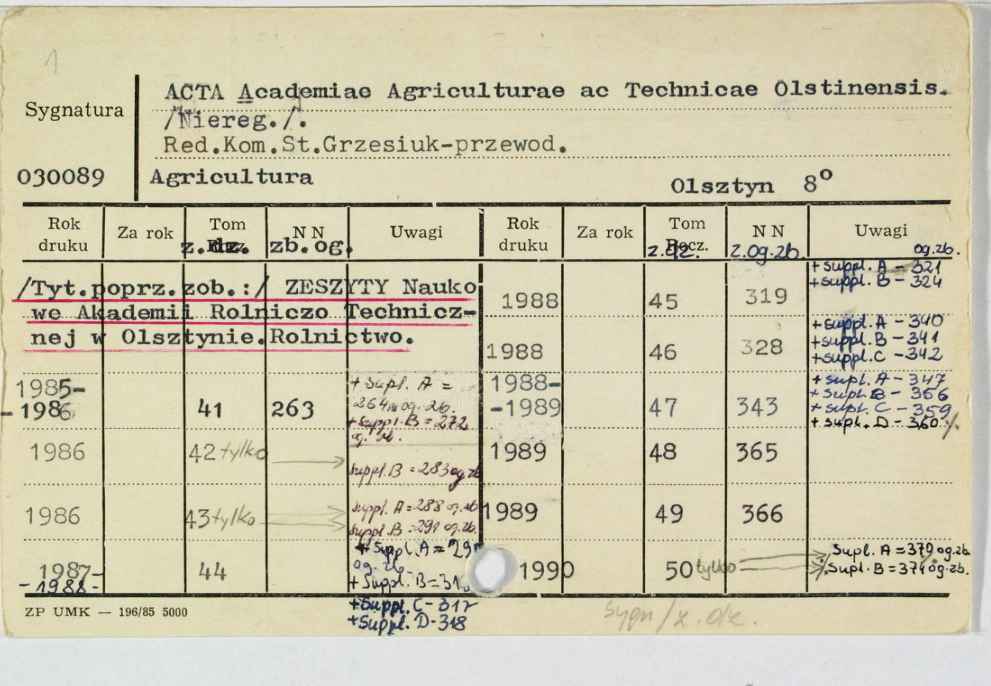 1
ACTA Academiae Agriculturae ac Technicae Olstinensis.
Sygnatura
/Niereg./.
Red.Kom.St.Grzesiuk-przewod.
030089 Agricultura
Olsztyn 8º
Rok druku Za rok Tom N N Uwagi Rok druku Za rok Tom N N Uwagi
z. dz. zb.og. z.dz. Rocz. z.og.zb. og.zb.
/Tyt.poprz.zob.:/ ZESZYTY Nauko
we Akademii Rolniczo Technicz-
nej w Olsztynie.Rolnictwo.
1985-
-1986 41 263 + Supl. A =
264 og.zb.
+ Suppl. B = 272
og. zb.
1986 42 tylko suppl. B = 283 og zb
1986 43 tylko suppl. A = 288 og.zb
suppl. B = 291 og.zb.
1987-
-1988- 44 + Suppl. A =
og-zb.
+ Suppl. B=
+ Suppl. C- 317
+ Suppl. D- 318
1988 45 319 + suppl. A - 321
+ suppl. B - 324
1988 46 328 + suppl. A - 340
+ suppl. B - 341
+ suppl. C - 342
1988-
-1989 47 343 + supl. A - 347
+ supl. B - 356
+ supl. C - 359
+ supl. D - 360
1989 48 365
1989 49 366
1990 50 tylko Supl. A = 370 og.zb.
Supl. B = 371 og.zb.
ZP UMK — 196/85 5000
sygn/z. dz.